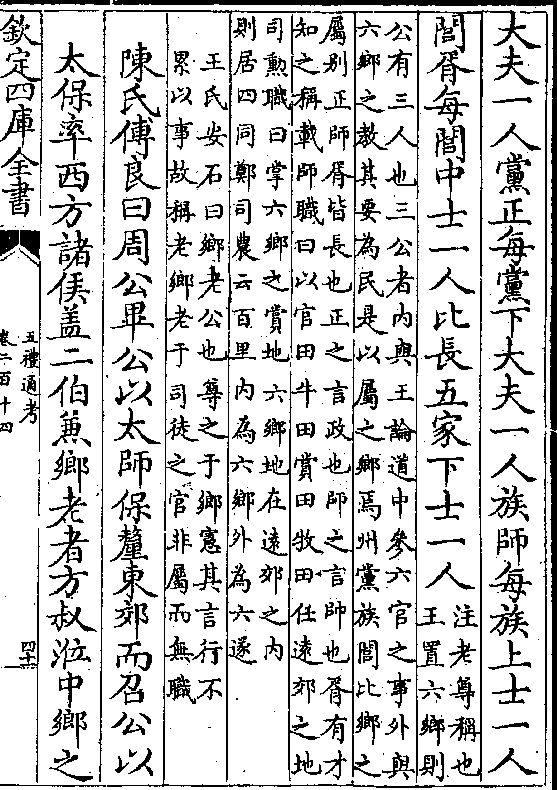 大夫一人黨正每黨下大夫一人族師每族上士一人
閭胥每閭中士一人比長五家下士一人
注老尊稱也
王置六鄉則
公有三人也三公者内與王論道中參六官之事外與
六鄉之教其要為民是以屬之鄉焉州黨族閭比鄉之
屬别正師胥皆長也正之言政也師之言師也胥有才
知之稱載師職曰以官田牛田賞田牧田任遠郊之地
司勲職曰掌六鄉之賞地六鄉地在遠郊之内
則居四同鄭司農云百里内為六鄉外為六遂
王氏安石曰鄉老公也尊之于鄉憲其言行不
累以事故稱老鄉老于司徒之官非屬而無職
陳氏傅良曰周公畢公以太師保釐東郊而召公以
太保率西方諸侯盖二伯兼鄉老者方叔涖中鄉之
欽定四庫全書
五禮通考
卷二百十四